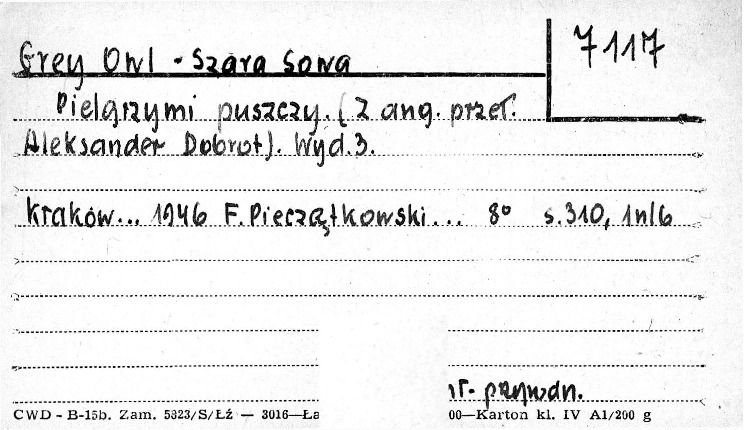 7117
Grey Owl - Szara Sowa
Pielgrzymi puszczy. (Z ang. przeł.
Aleksander Dobrot). Wyd. 3.
Kraków... 1946 F. Pieczątkowski... 8° s. 310, 1nl6
przyrodn.
CWD - B-15b. Zam. 5323/S/Łź — 3016—Ła 00—Karton kl. IV A1/200 g